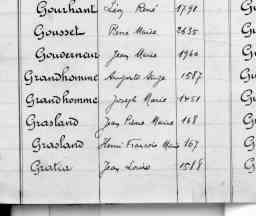 Gourhant Léon René 1791
Gousset Pierre Marie 2635
Gouverneur Jean Marie 1960
Grandhomme Auguste 1587
Grandhomme Joseph Marie 1451
Grasland Jean Pierre Marie 168
Grasland Henri François Marie 167
Gratia Jean Louis 1588